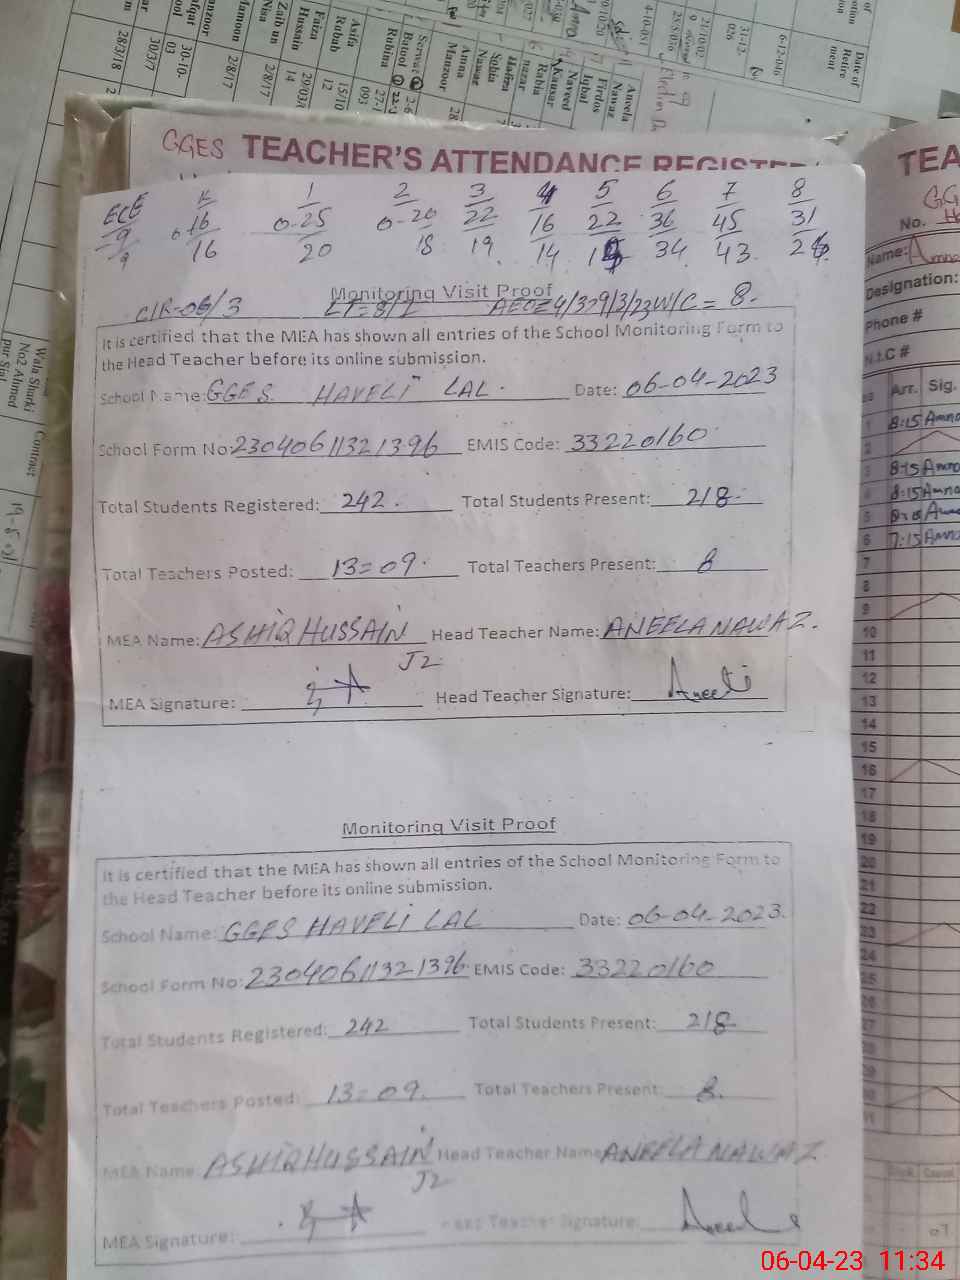 GGES TEACHER'S ATTENDANCE REGISTER
ECE K 1 2 3 4 5 6 7 8
9 16 0-25 0-20 22 16 22 36 45 31
9 16 20 18 19 14 34 43
Monitoring Visit Proof
CIR-06/3 AEO=4/3=9/3/23 W/C = 8-
It is certified that the MEA has shown all entries of the School Monitoring Form to
the Head Teacher before its online submission.
School Name: GGES HAVELI LAL Date: 06-04-2023
School Form No: 23040611321396 EMIS Code: 33220160
Total Students Registered: 242 Total Students Present: 218
Total Teachers Posted: 13=09 Total Teachers Present: 8
MEA Name: ASHIQ HUSSAIN Head Teacher Name: ANEELA NAWAZ.
J2
MEA Signature: Head Teacher Signature: Aneela
Monitoring Visit Proof
It is certified that the MEA has shown all entries of the School Monitoring Form to
the Head Teacher before its online submission.
School Name: GGES HAVELI LAL Date: 06-04-2023.
School Form No: 23040611321396 EMIS Code: 33220160
Total Students Registered: 242 Total Students Present: 218
Total Teachers Posted: 13=09. Total Teachers Present: 8.
MEA Name: ASHIQ HUSSAIN Head Teacher Name: ANEELA NAWAZ
J2
MEA Signature: Head Teacher Signature: Aneela
TEA
GG
No.
Name: Amna
Designation:
Phone #
N.I.C #
Arr. Sig.
1 8:15 Amna
2
3 8:15 Amna
4 8:15 Amna
5
6 7:15 Amna
7
8
9
10
11
12
13
14
15
16
17
18
19
20
21
22
23
24
25
26
27
28
29
30
31
Date of
Retire
ment
Aneela
Nawaz
Firdos
Iqbal
Naveed
Kausar
Rabia
Sobia
Nawaz
Amna
Manzoor
Batool
Rubina
Asifa
Rubab
Faiza
Hussain
Zaib un
Nisa
28/3/18
30/3/7
2/8/17
2/8/17
Wala Sharki
No2 Ahmed
pur Sial
Contract
06-04-23 11:34